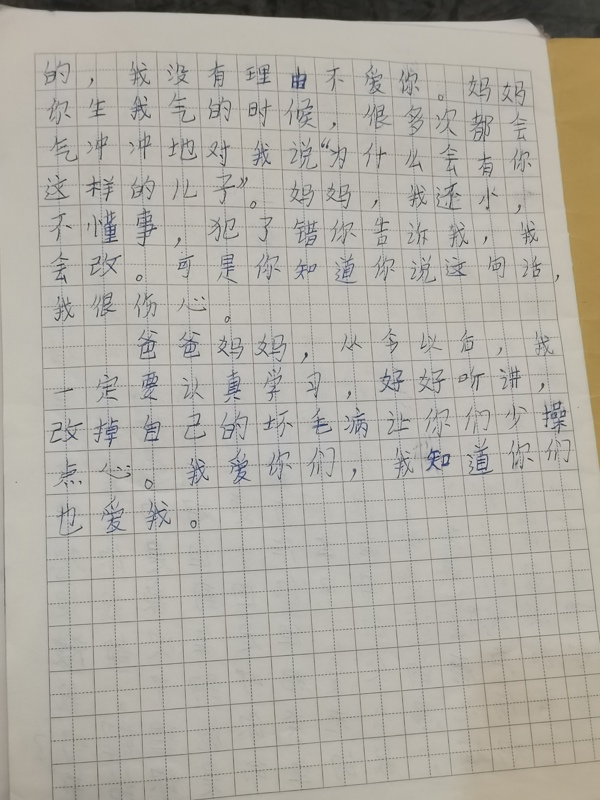 的，我没有理由不爱你。妈妈
你生我气的时候，很多次都会
气冲冲地对我说“为什么会有你
这样的儿子”。妈妈，我还小，
不懂事，犯了错你告诉我，我
会改。可是你知道你说这句话，
我很伤心。
爸爸妈妈，从今以后，我
一定要认真学习，好好听讲，
改掉自己的坏毛病让你们少操
点心。我爱你们，我知道你们
也爱我。